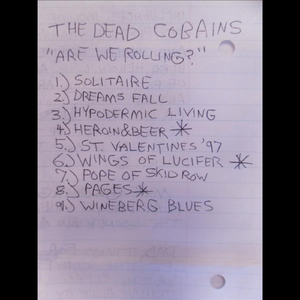 THE DEAD COBAINS
"ARE WE ROLLING?"
1.) SOLITAIRE
2.) DREAMS FALL
3.) HYPODERMIC LIVING
4.) HEROIN&BEER *
5.) ST. VALENTINES '97
6.) WINGS OF LUCIFER *
7.) POPE OF SKID ROW
8.) PAGES *
9.) WINEBERG BLUES